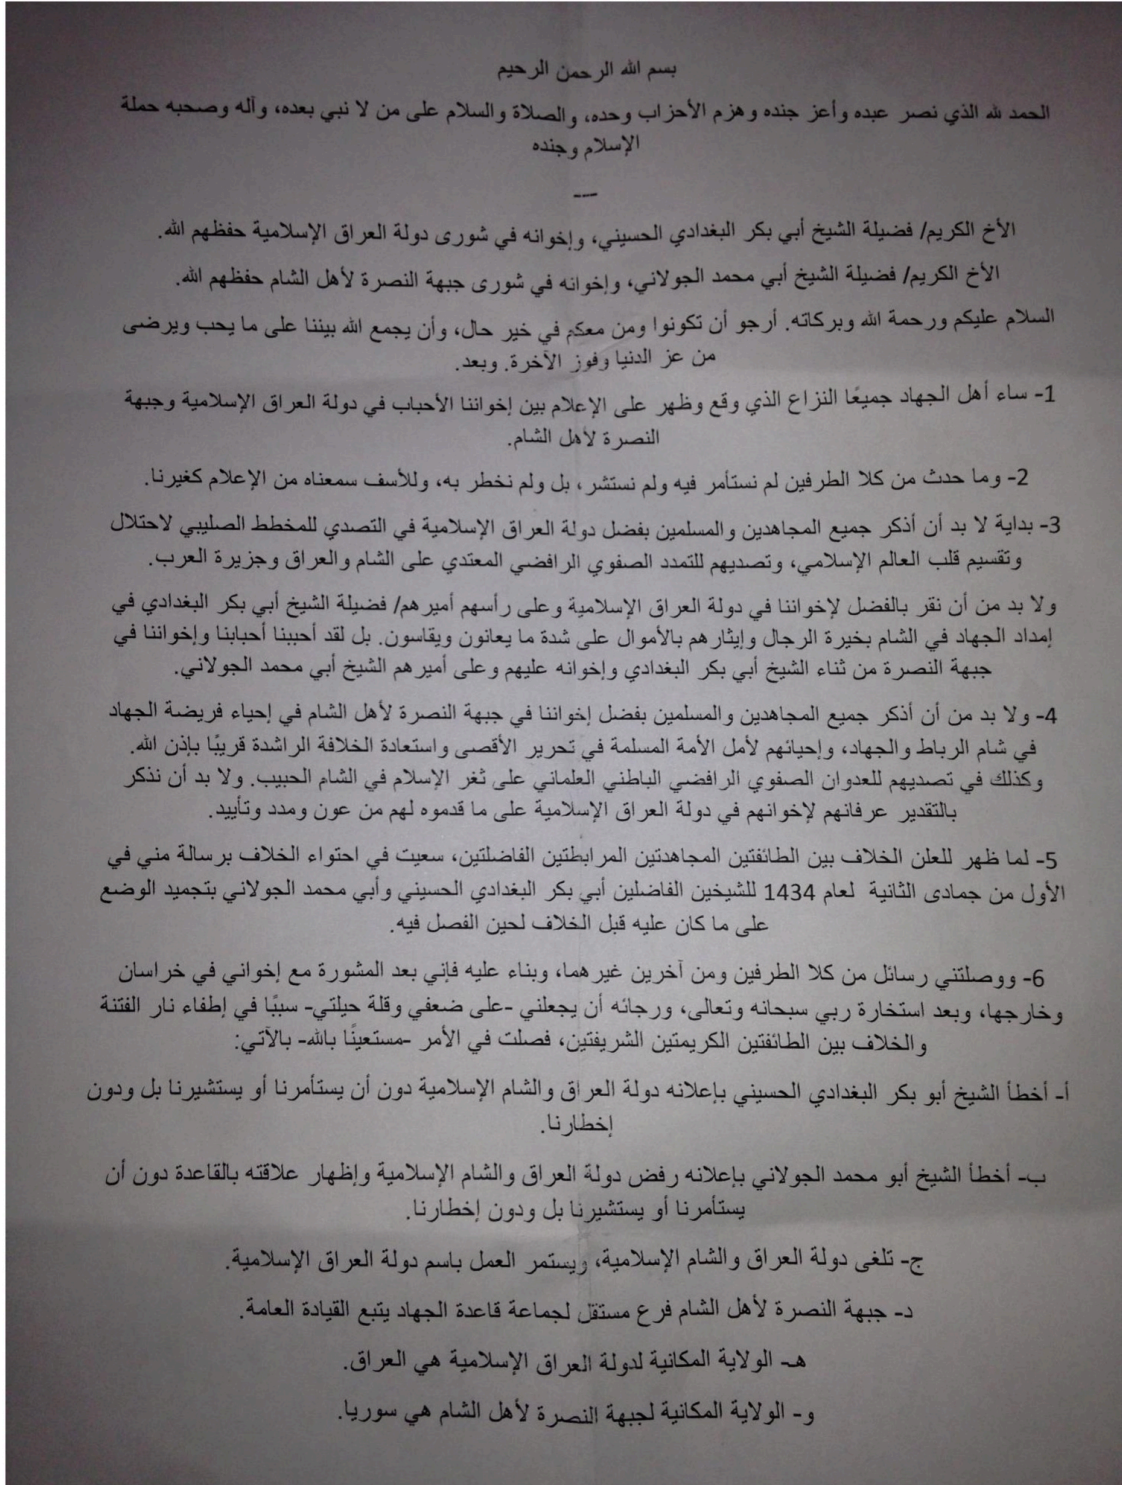 بسم الله الرحمن الرحيم
الحمد لله الذي نصر عبده وأعز جنده وهزم الأحزاب وحده، والصلاة والسلام على من لا نبي بعده، وآله وصحبه حملة
الإسلام وجنده
---
الأخ الكريم/ فضيلة الشيخ أبي بكر البغدادي الحسيني، وإخوانه في شورى دولة العراق الإسلامية حفظهم الله.
الأخ الكريم/ فضيلة الشيخ أبي محمد الجولاني، وإخوانه في شورى جبهة النصرة لأهل الشام حفظهم الله.
السلام عليكم ورحمة الله وبركاته. أرجو أن تكونوا ومن معكم في خير حال، وأن يجمع الله بيننا على ما يحب ويرضى
من عز الدنيا وفوز الآخرة. وبعد.
1- ساء أهل الجهاد جميعًا النزاع الذي وقع وظهر على الإعلام بين إخواننا الأحباب في دولة العراق الإسلامية وجبهة
النصرة لأهل الشام.
2- وما حدث من كلا الطرفين لم نستأمر فيه ولم نستشر، بل ولم نخطر به، وللأسف سمعناه من الإعلام كغيرنا.
3- بداية لا بد أن أذكر جميع المجاهدين والمسلمين بفضل دولة العراق الإسلامية في التصدي للمخطط الصليبي لاحتلال
وتقسيم قلب العالم الإسلامي، وتصديهم للتمدد الصفوي الرافضي المعتدي على الشام والعراق وجزيرة العرب.
ولا بد من أن نقر بالفضل لإخواننا في دولة العراق الإسلامية وعلى رأسهم أميرهم/ فضيلة الشيخ أبي بكر البغدادي في
إمداد الجهاد في الشام بخيرة الرجال وإيثارهم بالأموال على شدة ما يعانون ويقاسون. بل لقد أحببنا أحبابنا وإخواننا في
جبهة النصرة من ثناء الشيخ أبي بكر البغدادي وإخوانه عليهم وعلى أميرهم الشيخ أبي محمد الجولاني.
4- ولا بد من أن أذكر جميع المجاهدين والمسلمين بفضل إخواننا في جبهة النصرة لأهل الشام في إحياء فريضة الجهاد
في شام الرباط والجهاد، وإحيائهم لأمل الأمة المسلمة في تحرير الأقصى واستعادة الخلافة الراشدة قريبًا بإذن الله.
وكذلك في تصديهم للعدوان الصفوي الرافضي الباطني العلماني على ثغر الإسلام في الشام الحبيب. ولا بد أن نذكر
بالتقدير عرفانهم لإخوانهم في دولة العراق الإسلامية على ما قدموه لهم من عون ومدد وتأييد.
5- لما ظهر للعلن الخلاف بين الطائفتين المجاهدتين المرابطتين الفاضلتين، سعيت في احتواء الخلاف برسالة مني في
الأول من جمادى الثانية لعام 1434 للشيخين الفاضلين أبي بكر البغدادي الحسيني وأبي محمد الجولاني بتجميد الوضع
على ما كان عليه قبل الخلاف لحين الفصل فيه.
6- ووصلتني رسائل من كلا الطرفين ومن آخرين غيرهما، وبناء عليه فإني بعد المشورة مع إخواني في خراسان
وخارجها، وبعد استخارة ربي سبحانه وتعالى، ورجائه أن يجعلني -على ضعفي وقلة حيلتي- سببًا في إطفاء نار الفتنة
والخلاف بين الطائفتين الكريمتين الشريفتين، فصلت في الأمر -مستعينًا بالله- بالآتي:
أ- أخطأ الشيخ أبو بكر البغدادي الحسيني بإعلانه دولة العراق والشام الإسلامية دون أن يستأمرنا أو يستشيرنا بل ودون
إخطارنا.
ب- أخطأ الشيخ أبو محمد الجولاني بإعلانه رفض دولة العراق والشام الإسلامية وإظهار علاقته بالقاعدة دون أن
يستأمرنا أو يستشيرنا بل ودون إخطارنا.
ج- تلغى دولة العراق والشام الإسلامية، ويستمر العمل باسم دولة العراق الإسلامية.
د- جبهة النصرة لأهل الشام فرع مستقل لجماعة قاعدة الجهاد يتبع القيادة العامة.
هـ- الولاية المكانية لدولة العراق الإسلامية هي العراق.
و- الولاية المكانية لجبهة النصرة لأهل الشام هي سوريا.